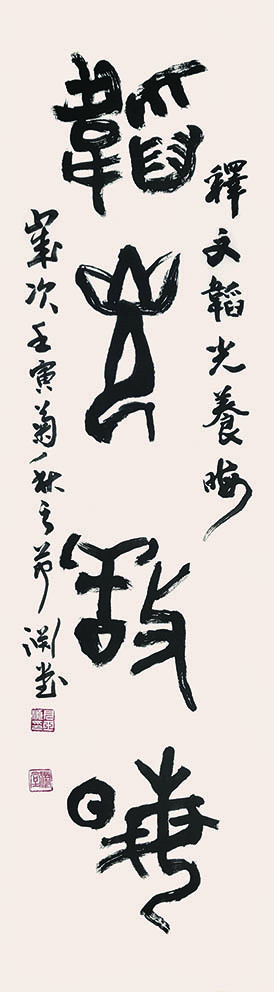 釋文韜光養晦
韜光養晦
歲次壬寅菊秋之節